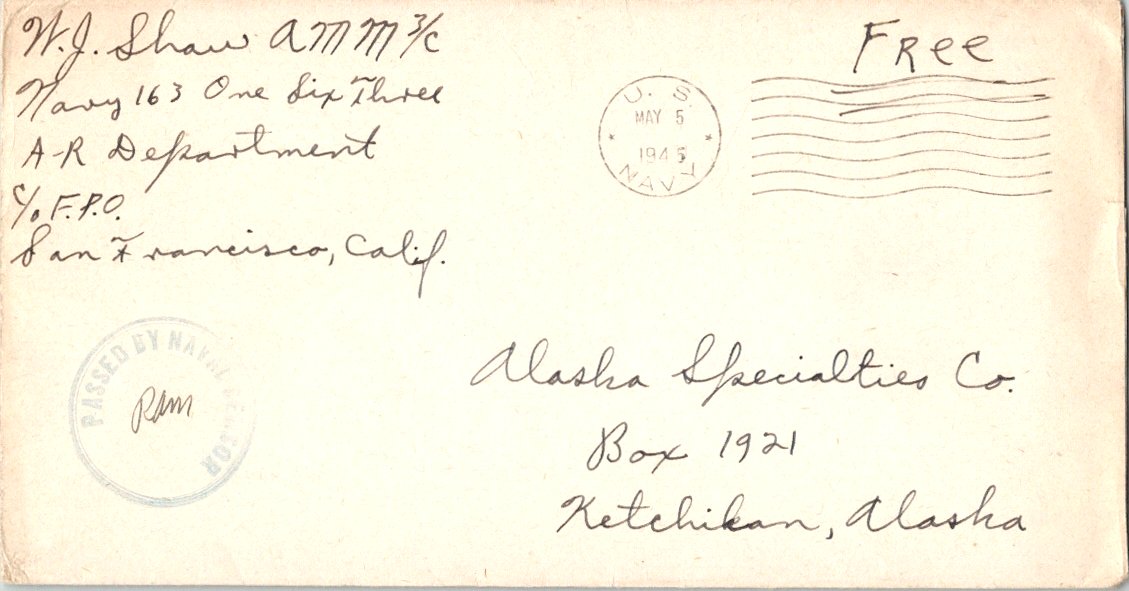 W.J. Shaw AMM 3/c
Navy 163 One Six Three
A-R Department
c/o F.P.O.
San Francisco, Calif.
Free
U. S.
MAY 5
1945
NAVY
PASSED BY NAVAL CENSOR
Alaska Specialties Co.
Box 1921
Ketchikan, Alaska